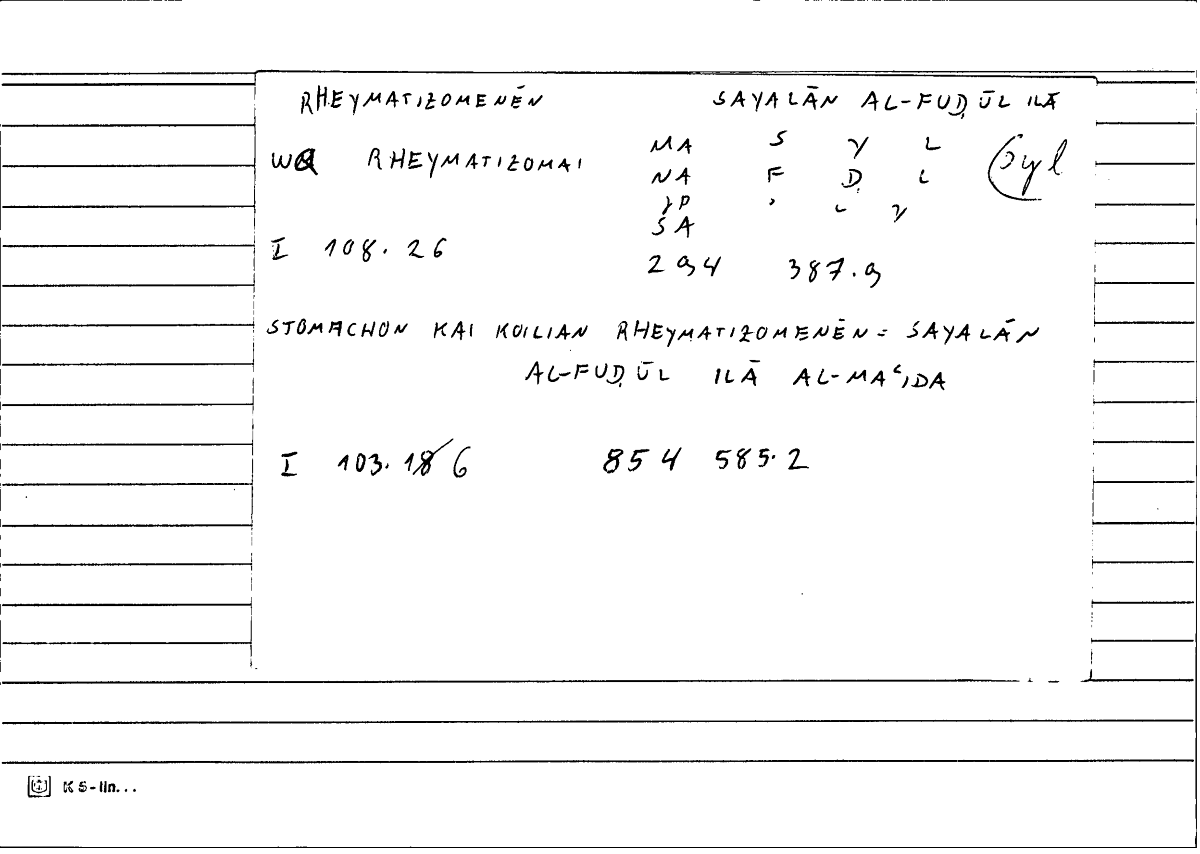 RHEYMATIZOMENĒN SAYALĀN AL-FUḌŪL ILĀ
WQ RHEYMATIZOMAI MA S Y L syl
NA F Ḍ L
YP ʾ L Y
SA
I 108.26 294 387.9
STOMACHON KAI KOILIAN RHEYMATIZOMENĒN = SAYALĀN
AL-FUḌŪL ILĀ AL-MAʿIDA
I 103.186 854 585.2
K5-lin...